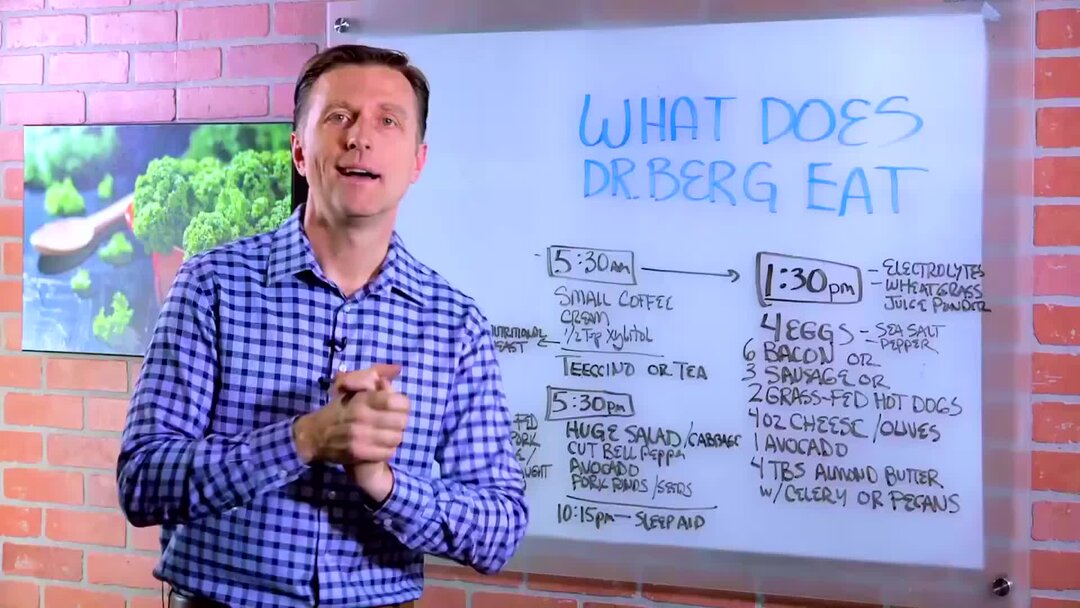 WHAT DOES
DR. BERG EAT
5:30AM
SMALL COFFEE
CREAM
1/2 Tsp Xylitol
TEECCINO OR TEA
5:30pm
HUGE SALAD/CABBAGE
CUT BELL PEPPER
AVOCADO
PORK RINDS/SEEDS
10:15pm — SLEEP AID
1:30pm
- ELECTROLYTES
- WHEATGRASS
JUICE POWDER
4 EGGS - SEA SALT
PEPPER
6 BACON OR
3 SAUSAGE OR
2 GRASS-FED HOT DOGS
4OZ CHEESE/OLIVES
1 AVOCADO
4 TBS ALMOND BUTTER
W/CELERY OR PECANS